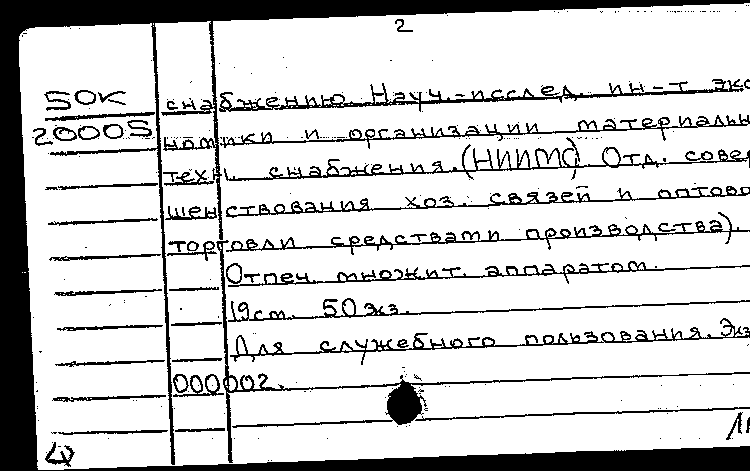 2
50К снабжению. Науч.-исслед. ин-т эко
20005 номики и организации материальн
техн. снабжения. (НИИМС) Отд. совер
шенствования хоз. связей и оптово
торговли средствами производства).
Отпеч. множит. аппаратом.
19см. 50 экз.
Для служебного пользования. Экз
000002.